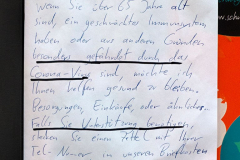 Wenn Sie über 65 Jahre alt
sind, ein geschwächtes Immunsystem
haben oder aus anderen Gründen
besonders gefährdet durch das
Corona-Virus sind, möchte ich
Ihnen helfen gesund zu bleiben.
Besorgungen, Einkäufe, oder ähnliches.
Falls Sie Unterstützung benötigen,
einen Zettel mit Ihrer
Tel-Nummer in unseren Briefkasten